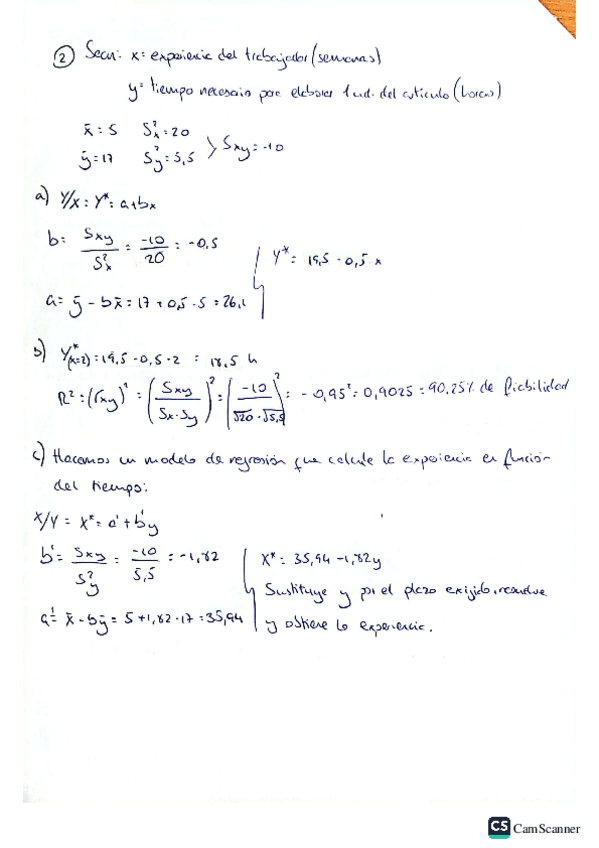 ② Sean: x= experiencia del trabajador (semanas)
y= tiempo necesario para elaborar 1 ud. del artículo (horas)
x̄ = 5 S²x = 20
ȳ = 17 S²y = 5,5 > Sxy = -10
a) Y/X : Y* = a+bx
b = Sxy/S²x = -10/20 = -0,5
Y* = 19,5 - 0,5 x
a = ȳ - bx̄ = 17 + 0,5 · 5 =
b) Y*(x=2) = 19,5 - 0,5 · 2 = 18,5 h
R² = (rxy)² = (Sxy/Sx·Sy)² = (-10/√20 · √5,5)² = -0,95² = 0,9025 = 90,25% de fiabilidad
c) Hacemos un modelo de regresión que calcule la experiencia en función
del tiempo:
X/Y = X* = a' + b'y
b' = Sxy/S²y = -10/5,5 = -1,82
X* = 35,94 - 1,82y
Sustituye y por el plazo exigido, resuelve
a' = x̄ - bȳ = 5 + 1,82 · 17 = 35,94
y obtiene la experiencia.
CS CamScanner